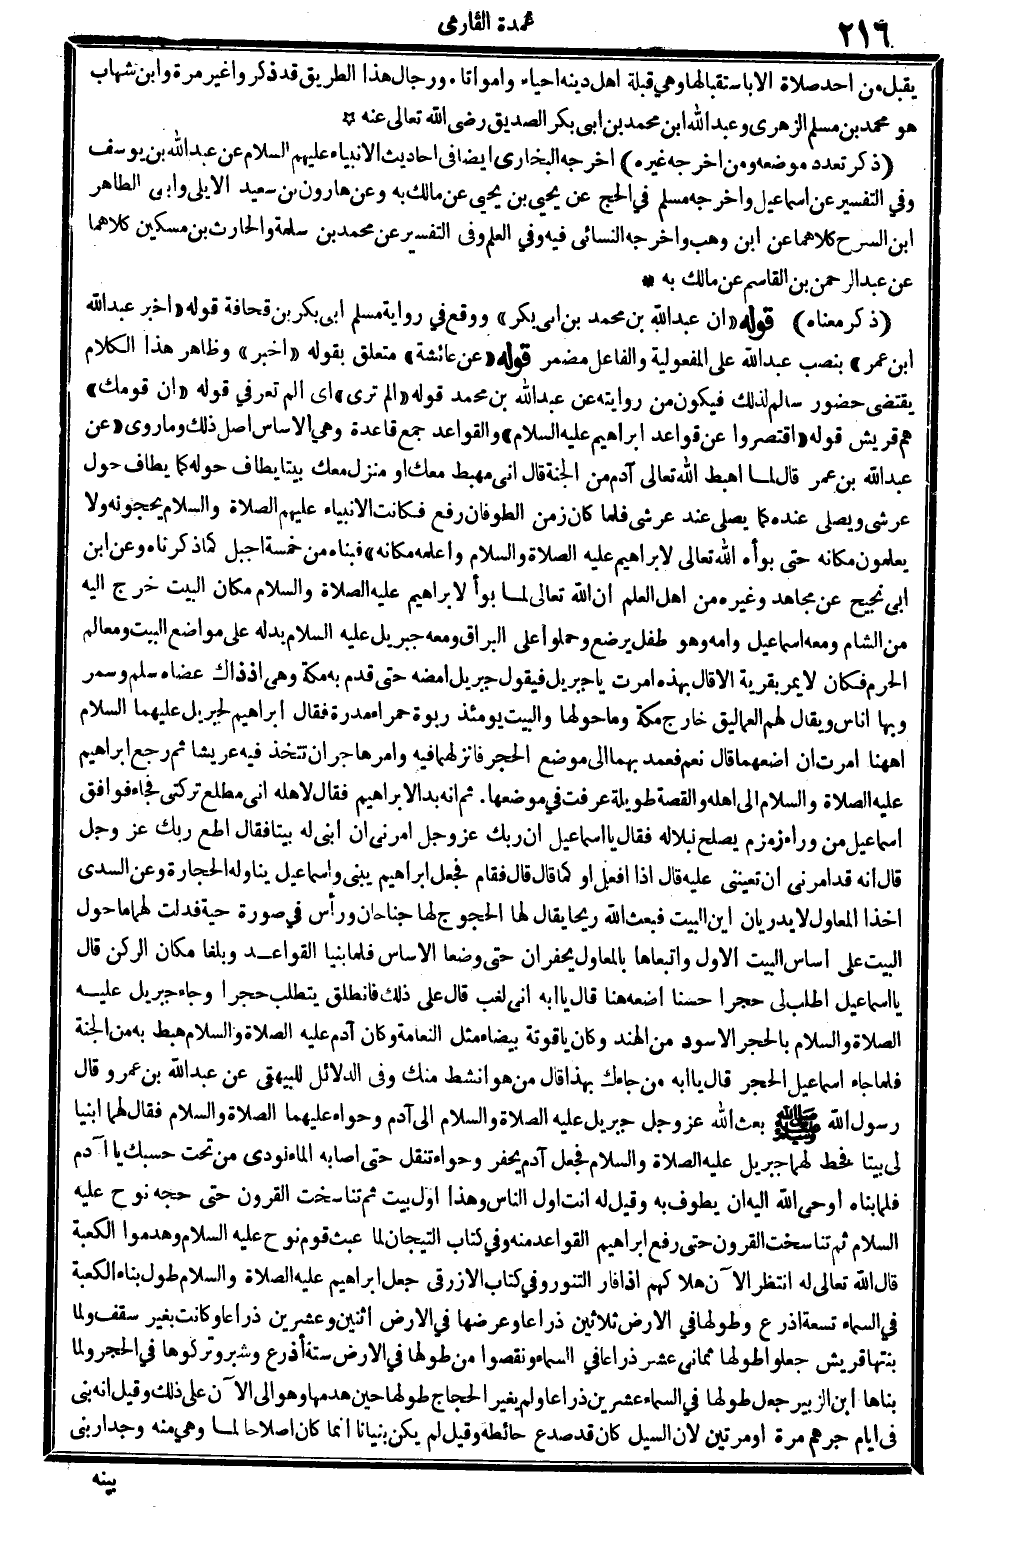 ٢١٦
عمدة القارى
يقبل من احد صلاة الا باستقبالها وهي قبلة اهل دينه احياء وامواتا . ورجال هذا الطريق قد ذكروا غير مرة وابن شهاب
هو محمد بن مسلم الزهرى وعبد الله ابن محمد بن ابى بكر الصديق رضى الله تعالى عنه ☆
(ذكر تعدد موضعه ومن اخرجه غيره) اخرجه البخارى ايضا فى احاديث الانبياء عليهم السلام عن عبد الله بن يوسف
وفي التفسير عن اسماعيل واخرجه مسلم في الحج عن يحيى بن يحيى عن مالك به وعن هارون بن سعيد الايلى وابى الطاهر
ابن السرح كلاهما عن ابن وهب واخرجه النسائى فيه وفي العلم وفى التفسير عن محمد بن سلمة والحارث بن مسكين كلاهما
عن عبد الرحمن بن القاسم عن مالك به *
(ذكر معناه) قوله «ان عبد الله بن محمد بن ابى بكر» ووقع في رواية مسلم ابى بكر بن قحافة قوله «اخبر عبد الله
ابن عمر» بنصب عبد الله على المفعولية والفاعل مضمر قوله «عن عائشة» متعلق بقوله «اخبر» وظاهر هذا الكلام
يقتضى حضور سالم لذلك فيكون من روايته عن عبد الله بن محمد قوله «الم ترى» اى الم تعرفي قوله «ان قومك»
هم قريش قوله «اقتصروا عن قواعد ابراهيم عليه السلام» والقواعد جمع قاعدة وهي الاساس اصل ذلك وماروى «عن
عبد الله بن عمر قال لما اهبط الله تعالى آدم من الجنة قال انى مهبط معك او منزل معك بيتا يطاف حوله كما يطاف حول
عرشى ويصلى عنده كما يصلى عند عرشى فلما كان زمن الطوفان رفع فكانت الانبياء عليهم الصلاة والسلام يحجونه ولا
يعلمون مكانه حتى بوأه الله تعالى لابراهيم عليه الصلاة والسلام واعلمه مكانه» فبناه من خمسة اجبل كما ذكرناه وعن ابن
ابى نجيح عن مجاهد وغيره من اهل العلم ان الله تعالى لما بوأ لابراهيم عليه الصلاة والسلام مكان البيت خرج اليه
من الشام ومعه اسماعيل وامه وهو طفل يرضع وحملوا على البراق ومعه جبريل عليه السلام يدله على مواضع البيت ومعالم
الحرم فكان لا يمر بقرية الا قال بهذه امرت يا جبريل فيقول جبريل امضه حتى قدم به مكة وهى اذ ذاك عضاه سلم وسمر
وبها اناس ويقال لهم العماليق خارج مكة وما حولها والبيت يومئذ ربوة حمراء مدرة فقال ابراهيم لجبريل عليهما السلام
اههنا امرت ان اضعهما قال نعم فعمد بهما الى موضع الحجر فانزلهما فيه وامرها جر ان تتخذ فيه عريشا ثم رجع ابراهيم
عليه الصلاة والسلام الى اهله والقصة طويلة عرفت في موضعها. ثم انه بدا لابراهيم فقال لاهله انى مطلع تركتى فجاء فوافق
اسماعيل من وراء زمزم يصلح نبلا له فقال يا اسماعيل ان ربك عز وجل امرنى ان ابنى له بيتا فقال اطع ربك عز وجل
قال انه قد امرنى ان تعيننى عليه قال اذا افعل او كما قال قال فقام فجعل ابراهيم يبنى واسماعيل يناوله الحجارة وعن السدى
اخذا المعاول لا يدريان اين البيت فبعث الله ريحا يقال لها الحجوج لها جناحان ورأس في صورة حية فدلت لهما ما حول
البيت على اساس البيت الاول واتبعاها بالمعاول يحفران حتى وضعا الاساس فلما بنيا القواعد وبلغا مكان الركن قال
يا اسماعيل اطلب لى حجرا حسنا اضعه هنا قال يا ابه انى لغب قال على ذلك فانطلق يتطلب حجرا وجاء جبريل عليه
الصلاة والسلام بالحجر الاسود من الهند وكان ياقوتة بيضاء مثل النعامة وكان آدم عليه الصلاة والسلام هبط به من الجنة
فلما جاء اسماعيل الحجر قال يا ابه من جاءك بهذا قال من هو انشط منك وفى الدلائل للبيهقى عن عبد الله بن عمرو قال
رسول الله ﷺ بعث الله عز وجل جبريل عليه الصلاة والسلام الى آدم وحواء عليهما الصلاة والسلام فقال لهما ابنيا
لى بيتا فخط لهما جبريل عليه الصلاة والسلام فجعل آدم يحفر وحواء تنقل حتى اصابه الماء نودى من تحت حسبك يا آدم
فلما بناه أوحى الله اليه ان يطوف به وقيل له انت اول الناس وهذا اول بيت ثم تناسخت القرون حتى حجه نوح عليه
السلام ثم تناسخت القرون حتى رفع ابراهيم القواعد منه وفي كتاب التيجان لما عبث قوم نوح عليه السلام وهدموا الكعبة
قال الله تعالى له انتظر الآن هلاكهم اذا فار التنور وفي كتاب الازرقى جعل ابراهيم عليه الصلاة والسلام طول بناء الكعبة
في السماء تسعة اذرع وطولها في الارض ثلاثين ذراعا وعرضها في الارض اثنين وعشرين ذراعا وكانت بغير سقف ولما
بنتها قريش جعلوا طولها ثمانى عشر ذراعا في السماء ونقصوا من طولها في الارض ستة أذرع وشبر وتركوها في الحجر ولما
بناها ابن الزبير جعل طولها في السماء عشرين ذراعا ولم يغير الحجاج طولها حين هدمها وهو الى الآن على ذلك وقيل انه بنى
فى ايام جرهم مرة او مرتين لان السيل كان قد صدع حائطه وقيل لم يكن بنيانا انما كان اصلاحا لما وهى منه وجدار بنى
بينه